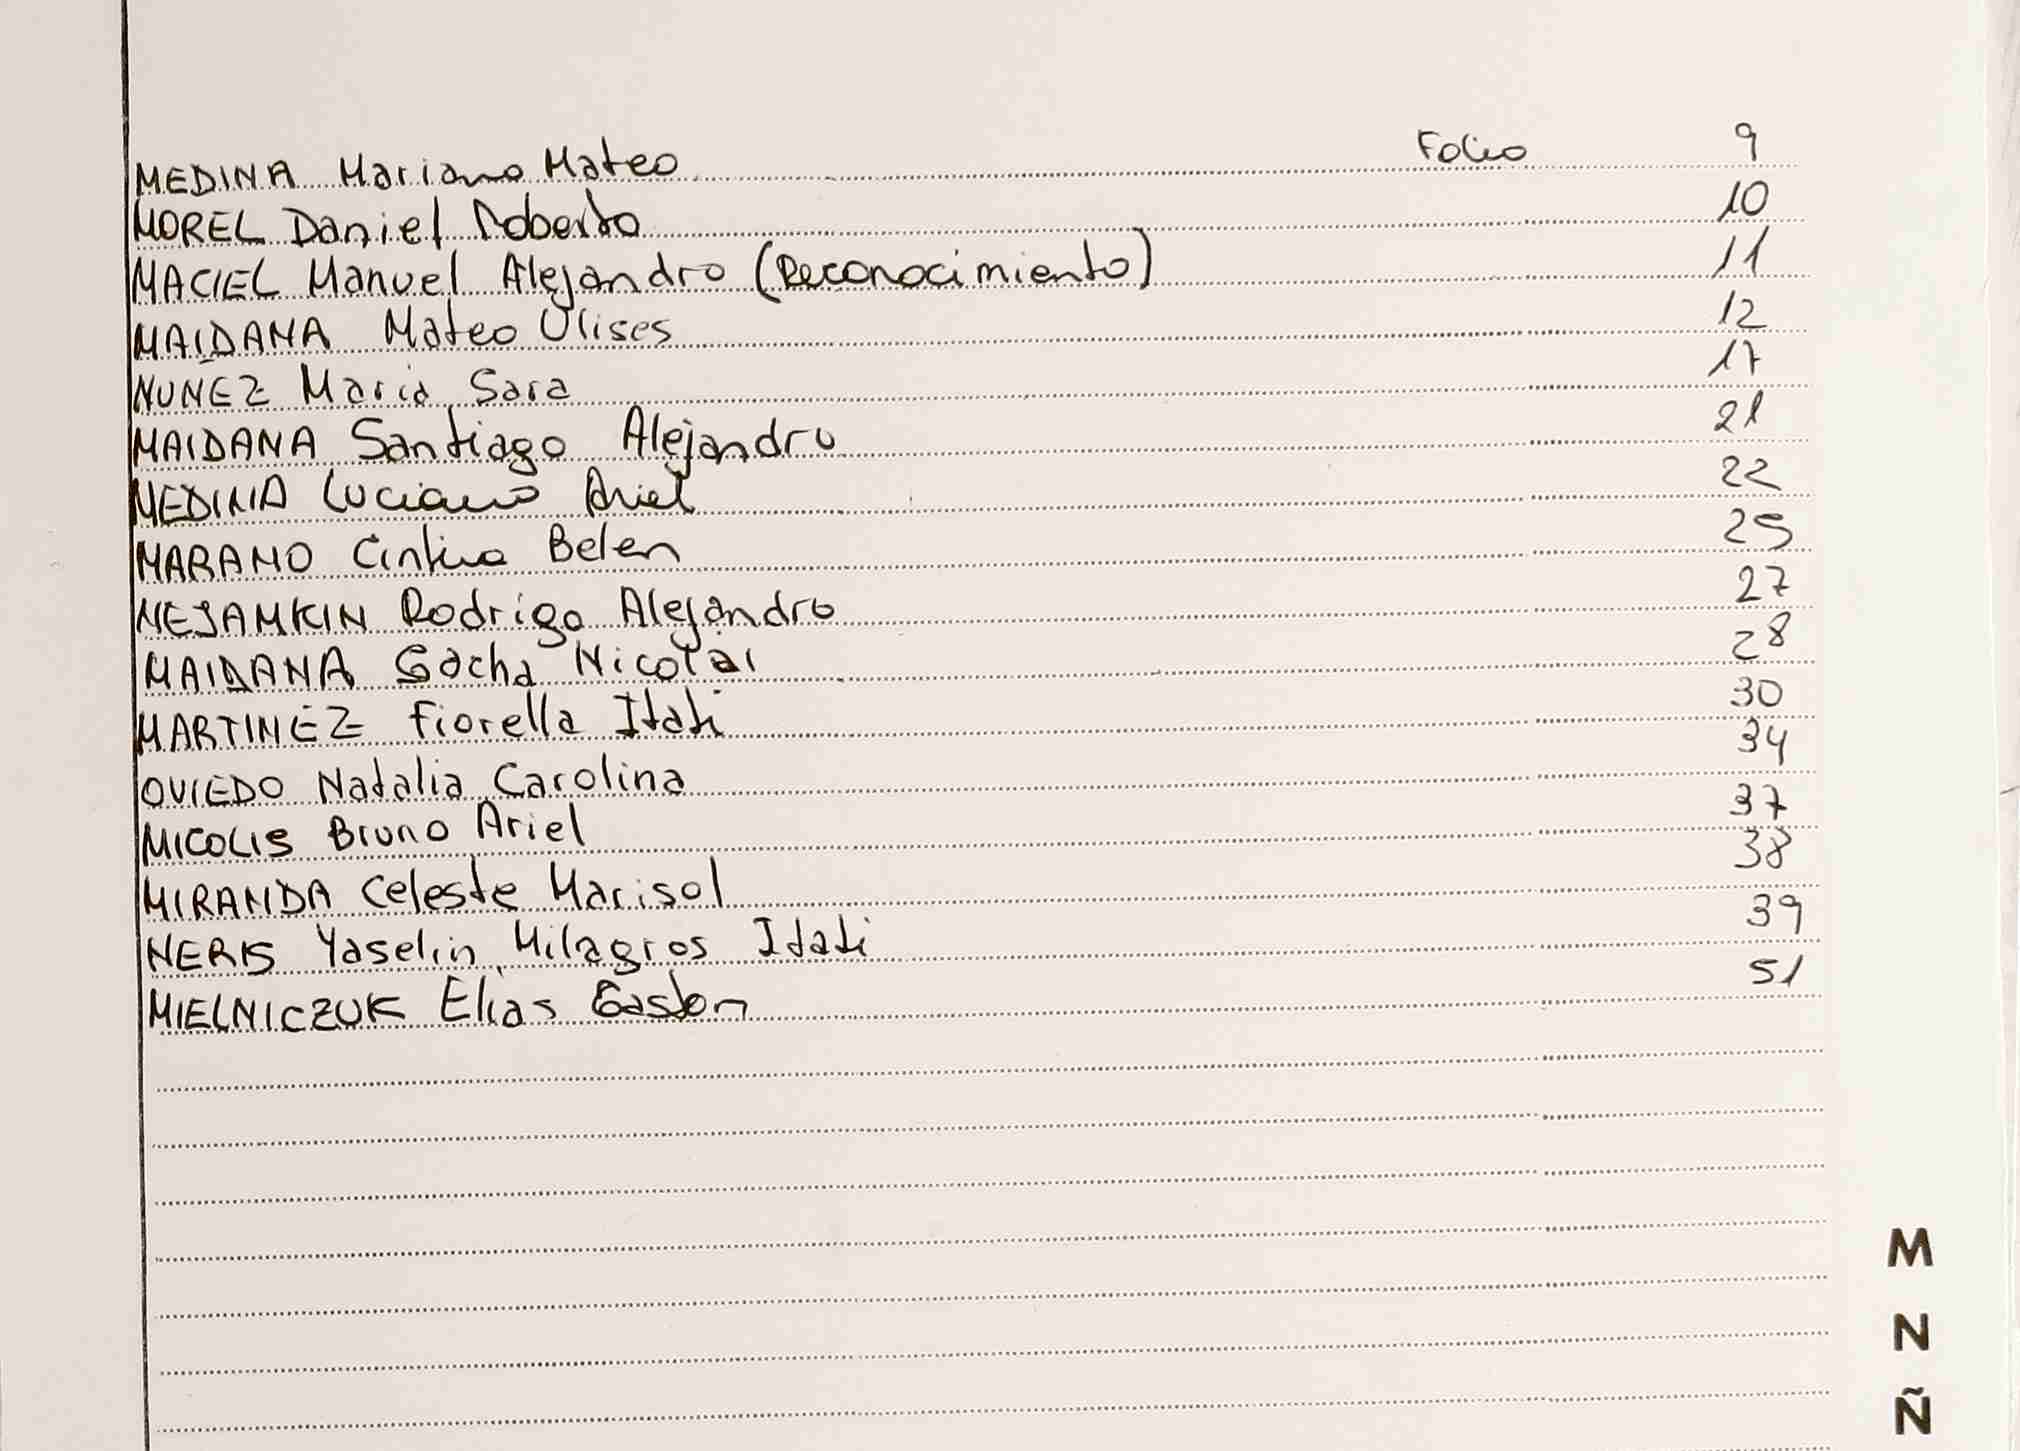 MEDINA Mariano Mateo Folio 9
MOREL Daniel Roberto 10
MACIEL Manuel Alejandro (Reconocimiento) 11
MAIDANA Mateo Ulises 12
NUÑEZ Maria Sara 17
MAIDANA Santiago Alejandro 21
MEDINA Luciano Ariel 22
MARAMO Cintia Belen 25
NEJAMKIN Rodrigo Alejandro 27
MAIDANA Sacha Nicolai 28
MARTINEZ Fiorella Itati 30
OVIEDO Natalia Carolina 34
MICOLIS Bruno Ariel 37
MIRANDA Celeste Marisol 38
NERIS Yaselin Milagros Itati 39
MIELNICZUK Elias Gaston 51
M
N
Ñ